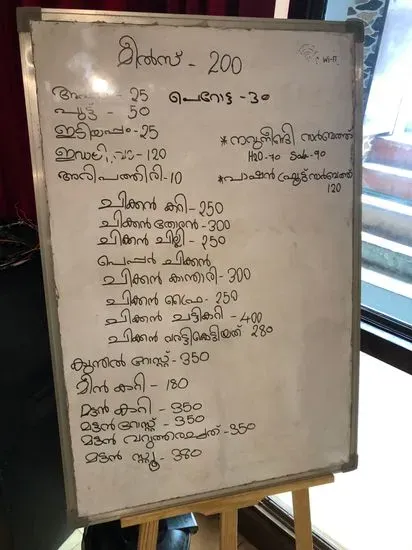 മീൽസ് - 200
Wi-Fi
- 25 പെറോട്ട - 30
പുട്ട് - 50
ഇടിയപ്പം - 25
*നറുനീണ്ടി സർബത്ത്
ഇഡലി, വട - 120
H2O - 70 Soda - 90
അരിപത്തിരി - 10
*പാഷൻഫ്രൂട്ട് സർബത്ത്
120
ചിക്കൻ കറി - 250
ചിക്കൻ തോരൻ - 300
ചിക്കൻ ചില്ലി - 250
പെപ്പർ ചിക്കൻ
ചിക്കൻ കാന്താരി - 300
ചിക്കൻ ഫ്രൈ - 250
ചിക്കൻ ചട്ടികറി - 400
ചിക്കൻ വറട്ടികെട്ടിയത് 280
കൂന്തൽ റോസ്റ്റ് - 350
മീൻ കറി - 180
മട്ടൻ കറി - 350
മട്ടൻ റോസ്റ്റ് - 350
മട്ടൻ വറുത്തരച്ചത് - 350
മട്ടൻ സ്റ്റൂ - 380